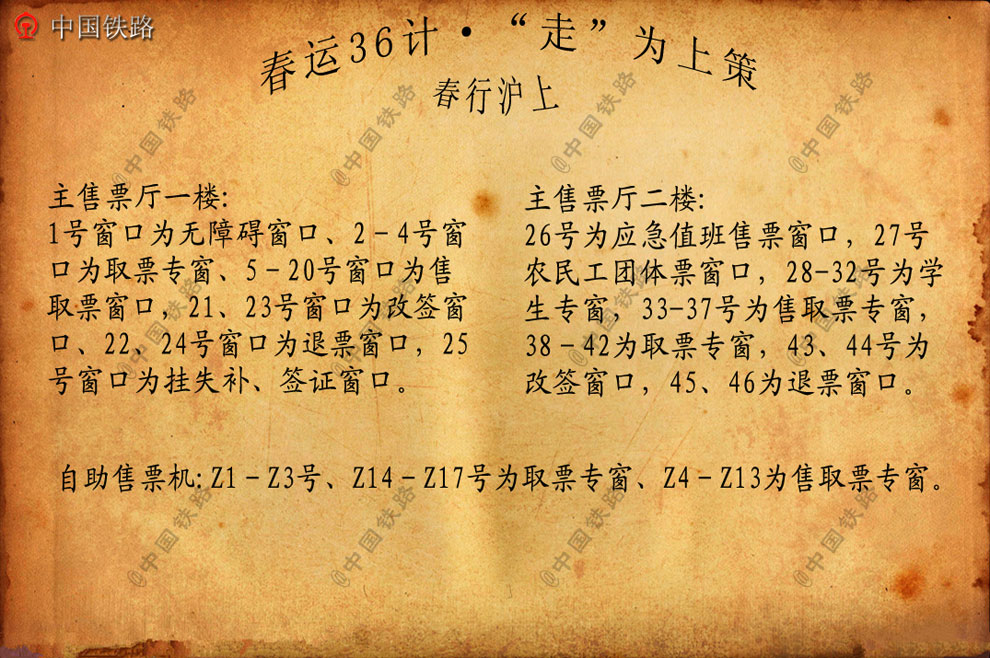 中国铁路
春运36计·“走”为上策
春行沪上
主售票厅一楼:
1号窗口为无障碍窗口、2-4号窗
口为取票专窗、5-20号窗口为售
取票窗口，21、23号窗口为改签窗
口、22、24号窗口为退票窗口，25
号窗口为挂失补、签证窗口。
主售票厅二楼:
26号为应急值班售票窗口，27号
农民工团体票窗口，28-32号为学
生专窗，33-37号为售取票专窗，
38-42为取票专窗，43、44号为
改签窗口，45、46为退票窗口。
自助售票机:Z1-Z3号、Z14-Z17号为取票专窗、Z4-Z13为售取票专窗。
@中国铁路
@中国铁路
@中国铁路
@中国铁路
@中国铁路
@中国铁路
@中国铁路
@中国铁路
@中国铁路
@中国铁路
@中国铁路
@中国铁路